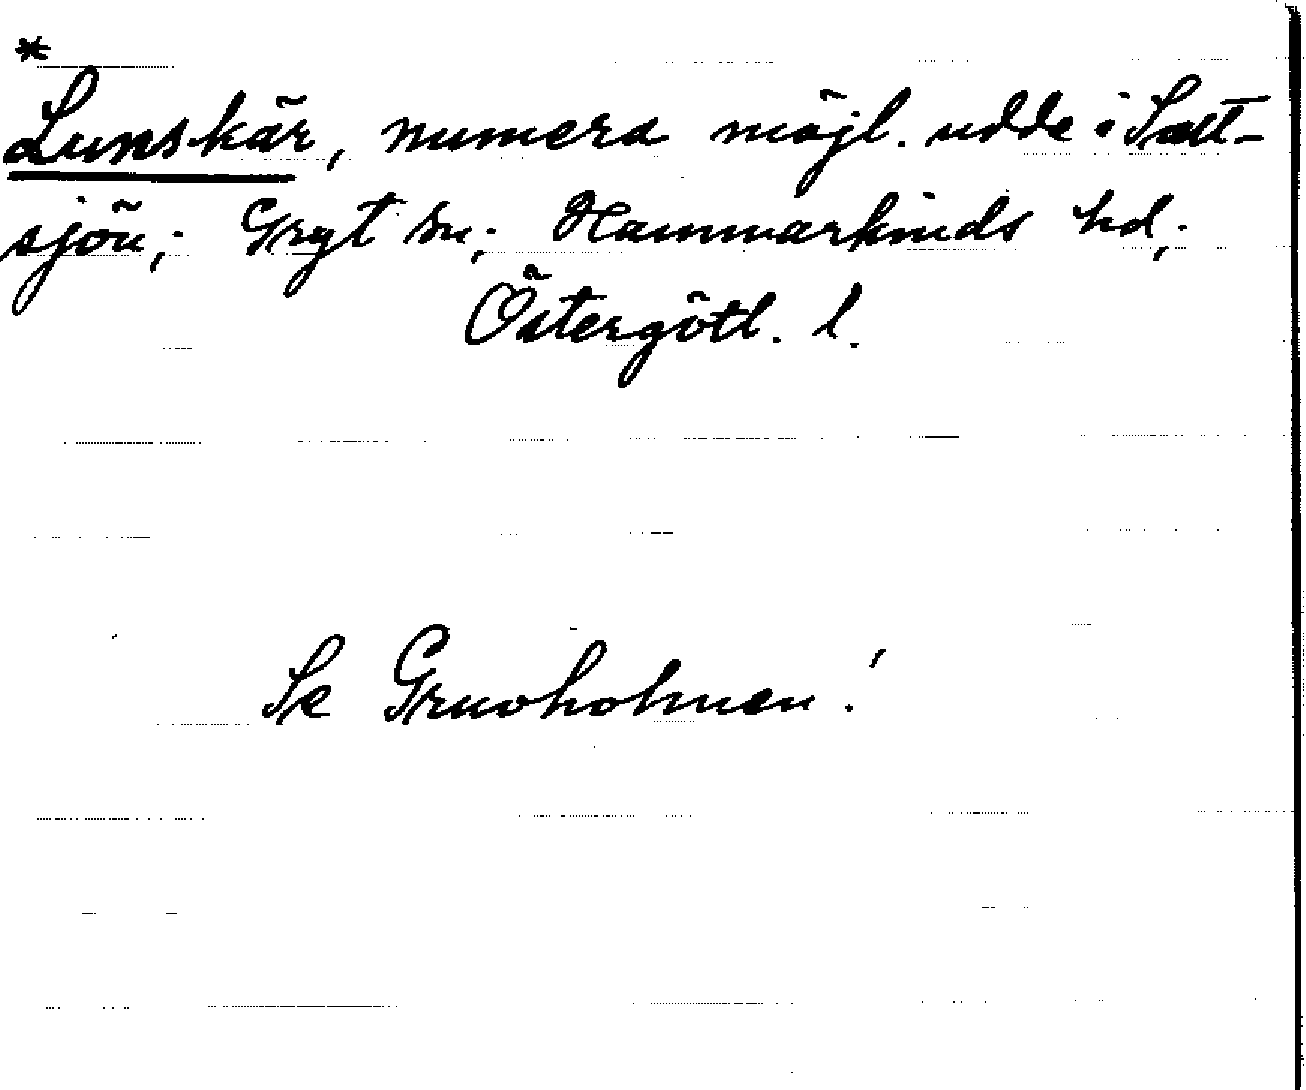 *
Lunskär, numera möjl. udde i Salt-
sjön; Gryt sn; Hammarkinds hd;
Östergötl. l.
Se Gruvholmen!